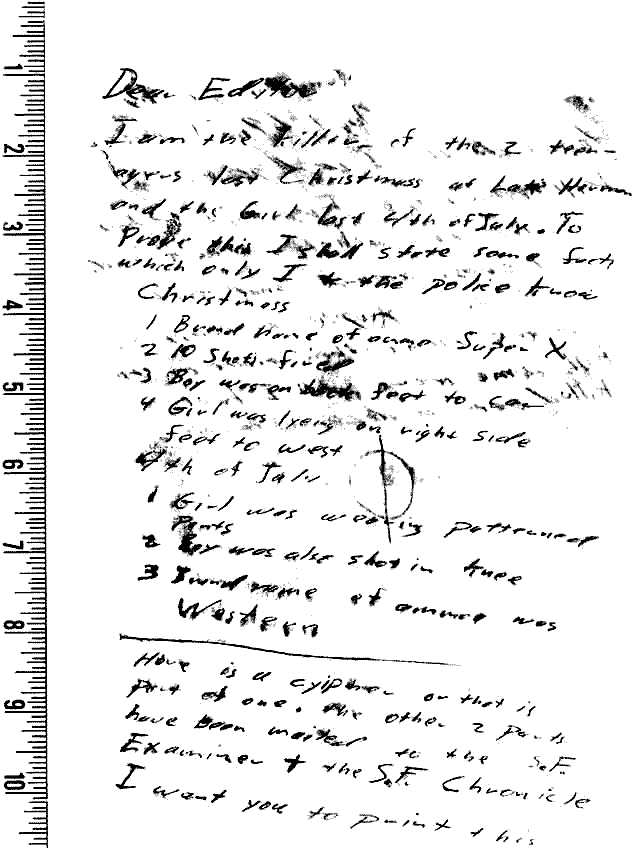 Dear Editor
I am the killer of the 2 teen-
agers last Christmass at Lake Herman
and the Girl last 4th of July. To
Prove this I shall state some facts
which only I + the police know
Christmass
1 Brand name of ammo Super X
2 10 Shots fired
3 Boy was on back feet to car
4 Girl was lyeing on right side
feet to west
4th of July
1 Girl was wearing patterned
pants
2 Boy was also shot in knee
3 Brand name of ammo was
Western
Here is a cyipher or that is
part of one. the other 2 parts
have been mailed to the S.F.
Examiner + the S.F. Chronicle
I want you to print this
1
2
3
4
5
6
7
8
9
10